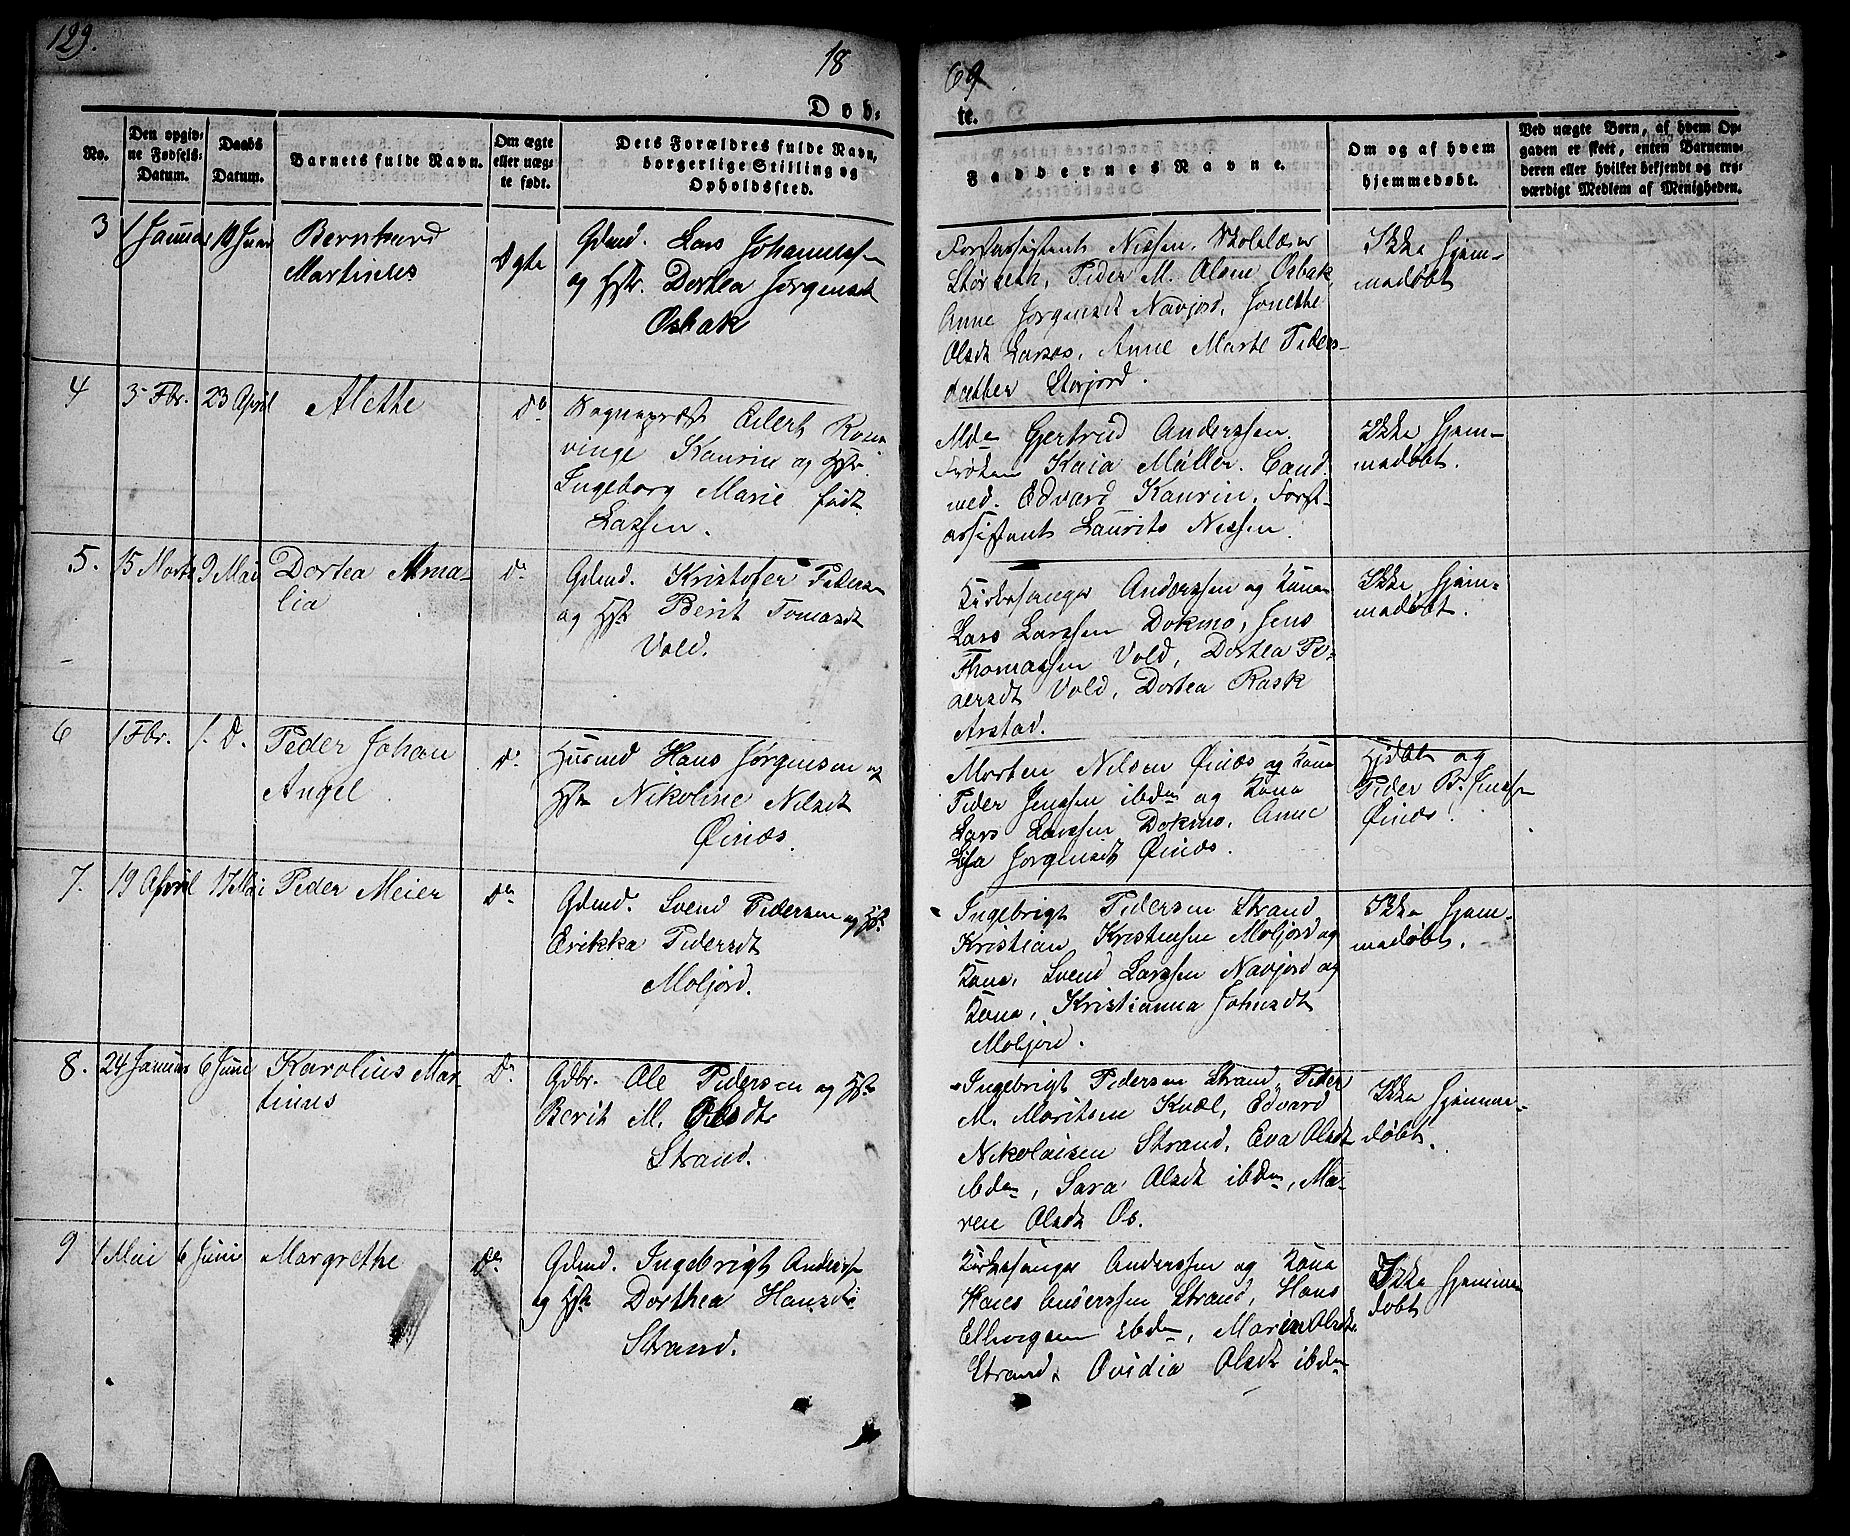 129.
18 69
Døb-
te.
No.
Den opgiv-
ne Fødsels-
Datum.
Daabs
Datum.
Barnets fulde Navn.
Om ægte
eller uæg-
te født.
Dets Forældres fulde Navn,
borgerlige Stilling og
Opholdssted.
Faddernes Navne.
Om og af hvem
hjemmedøbt.
Ved uægte Børn, af hvem Op-
gaven er skett, enten Barnemo-
deren eller hvilket bekjendt og tro-
værdigt Medlem af Menigheden.
3
1 Januar
Bernhard
Martinus
Ægte
Gdmd. Lars Johanness-
og Hstr. Dortea Jørgensdt
Osbak
Forstassistent Nissen, Skolelærer
Størseth, Peder M. Olsen Osbak,
Anne Jørgensdt Navjord, Jonethe
Olsdt Larsos, Anne Marte Peders-
datter Storjord.
Ikke hjem-
medøbt
4
5 Fbr.
23 April
Alethe
Do
Sogneprest Eilert
Kaurin og Hstr.
Ingeborg Marie født
Lassen.
Mdm Gjertrud Anderssen.
Frøken Kaia Müller. Cand
med. Edvard Kaurin, Forst-
assistent Laurits Nissen.
Ikke hjem-
medøbt.
5.
15 Marts
9 Mai
Dortea Ama-
lia
Do
Gdmd. Kristofer Peders-
og Hst Berit Tomasdt
Vold.
Kirkesanger Anderssen og Kone
Lars Larssen Dokmo, Jens
Thomassen Vold, Dortea Pe-
dersdt Vold, Dortea Rask
Arstad.
Ikke hjem-
medøbt.
6
1 Fbr.
1. D.
Peder Johan
Angel
Do
Husmd Hans Jørgensen og
Hstr Nikoline Nilsdt
Øinæs.
Morten Nilsen Øinæs og Kona
Peder Jenssen ibdm og Kona
Lars Larssen Dokmo, Anne
Lisa Jørgensdt Øinæs.
Hjdbt og
Peder B. Jenss-
Øinæs.
7.
19 April
17 Mai
Peder Meier
Do
Gdmd. Svend Pedersen og Hst
Erikka Pedersdt
Moljord.
Ingebrigt Pedersen Strand
Kristian Kristensen Moljord og
Kona, Svend Larssen Navjord og
Kona, Kristianna Johnsdt
Moljord.
Ikke hjem-
medøbt.
8.
24 Januar
6 Juni
Karolius Mar-
tinus
Do
Gdbr. Ole Pedersen og Hst
Berit M. Olsdt
Strand.
Ingebrigt Pedersen Strand, Peder
M. Moritsen Kvæl, Edvard
Nikolaisen Strand, Eva Olsdt
ibdm, Sara Olsdt ibdm, Ma-
ren Olsdt Os.
Ikke hjemme-
døbt.
9
1 Mai
6 Juni
Margrethe
Do
Gdmd. Ingebrigt Anders-
og Hst Dorthea Hansdt
Strand.
Kirkesanger Anderssen og Kona
Hans Anderssen Strand, Hans
Ellingsen ibdm, Maren Olsdt
Strand, Ovidia Olsdt ibdm
Ikke hjemme-
døbt